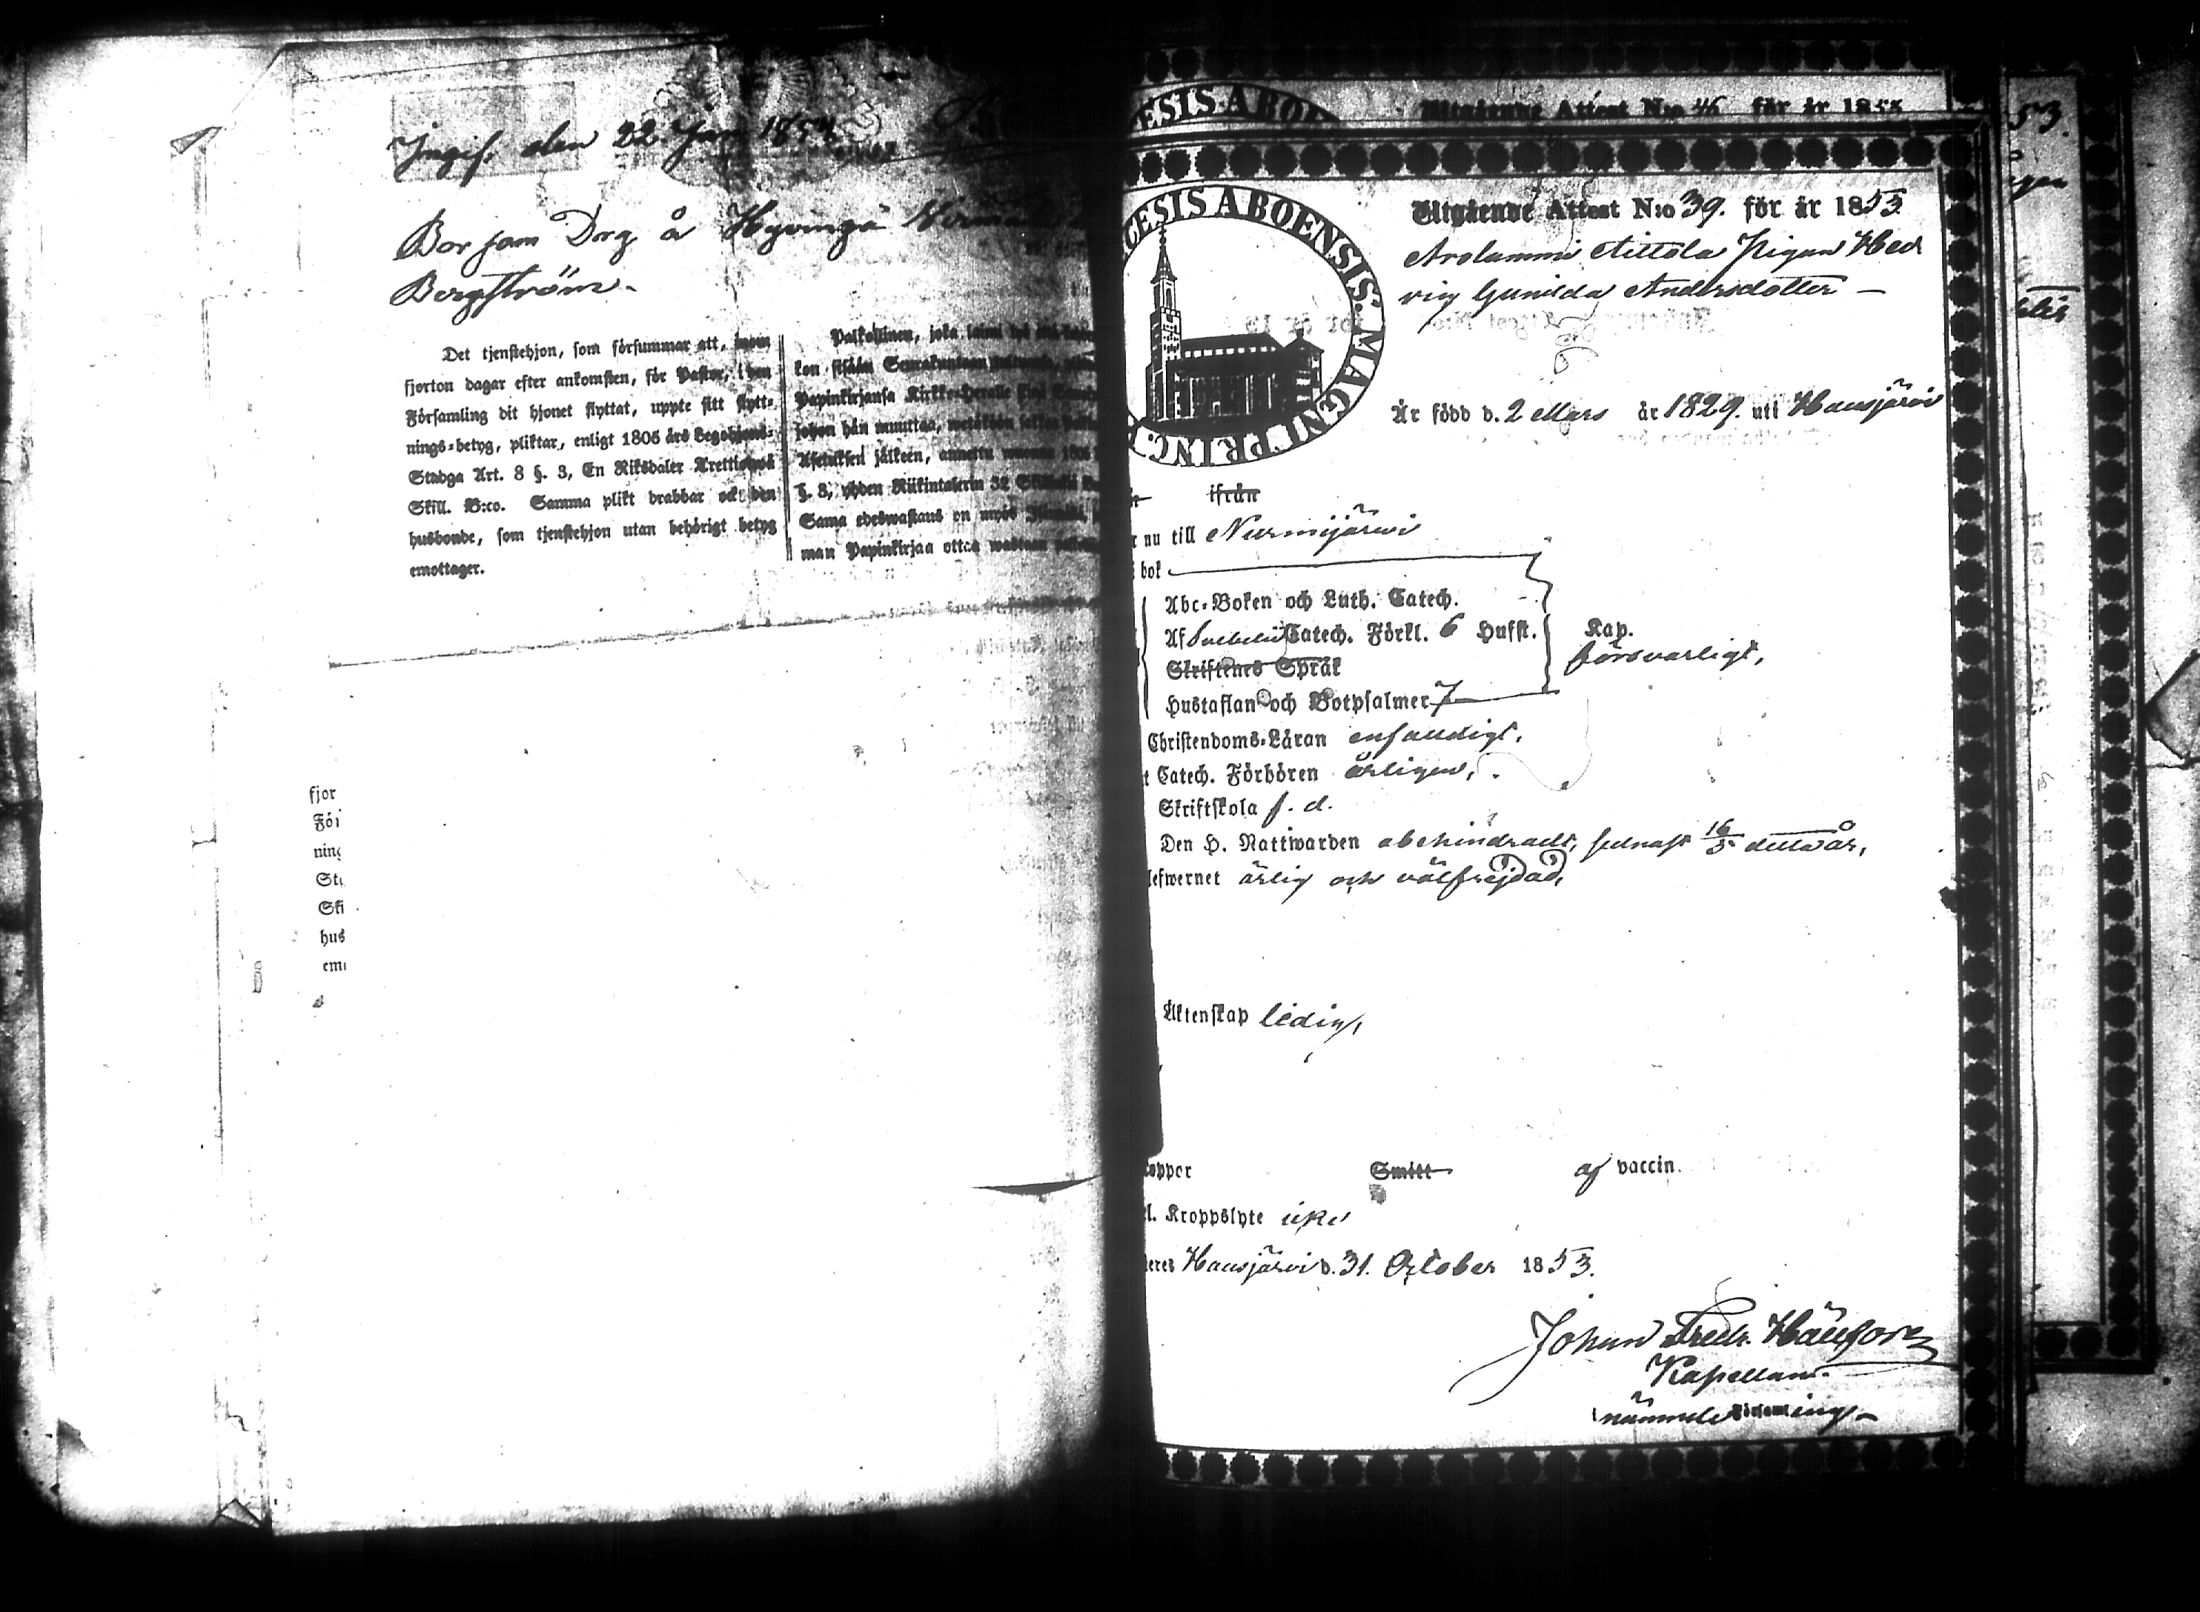 Ingif. den 22 Jan 1854
Bor som Drg å Hyvinge
Bergström
Det tjenstehjon, som försummar att, inom
fjorton dagar efter ankomsten, för Pastor, i den
Församling dit hjonet flyttat, uppte sitt flytt-
nings-betyg, pliktar, enligt 1805 års Legohjons-
Stadga Art. 8 §. 3, En Riksdaler Trettiotvå
Skill. B:co. Samma plikt drabbar ock den
husbonde, som tjenstehjon utan behörigt betyg
emottager.
Palkollinen, joka
kon sisään Seurakunnan
Papinkirjansa Kirkko-Herralle
johon hän muuttaa,
Asetuksen jälkeen, annettu wuonna 1805
§. 3, yhden Riikintalerin 32 Skillinkiä
Sama edeswastaus on myös
man Papinkirjaa ottaa wastaan
fjor
För
ning
Sta
Ski
hus
em
CESIS ABOENSIS. MAGNI PRINC.
ESIS ABO
Utgående Attest N:o 46 för år 1853
Utgående Attest N:o 39. för år 1853
Arolammi Aittola Pigan Hed
vig Gunilda Andersdotter –
Är född d. 2 Mars år 1829. uti Hausjärvi
ifrån
nu till Nurmijärvi
bok
Abc-Boken och Luth. Catech.
Af Svebelii Catech. Förkl. 6 Hufst.
Kap.
försvarligt,
Skriftenes Språk
Hustaflan och Botpsalmer 7
Christendoms-Läran enfaldigt,
t Catech. Förhören årligen,
Skriftskola f. d.
Den H. Nattwarden obehindradt, sednast 16/5 detta år,
lefwernet ärlig och välfrejdad,
Äktenskap ledig,
oppor Smitt af vaccin.
l. Kroppslyte icke
teres Hausjärvi d. 31. October 1853.
Johan Fredr.
Kapellan.
Församling
53.